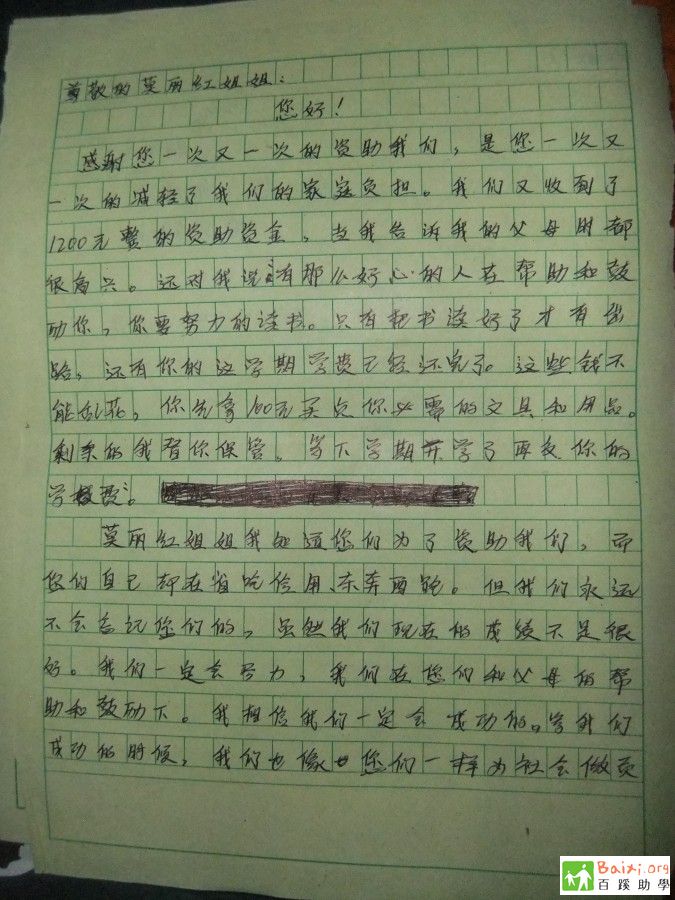 尊敬的莫丽红姐姐：
您好！
感谢您一次又一次的资助我们，是您一次又
一次的减轻了我们的家庭负担。我们又收到了
1200元整的资助资金，当我告诉我的父母时都
很高兴。还对我说：有那么好心的人在帮助和鼓
励你，你要努力的读书。只有把书读好了才有出
路，还有你的这学期学费已经还完了。这些钱不
能乱花，你先拿100元买点你必需的文具和用品。
剩余的我替你保管，等下学期开学了再交你的
学费。
莫丽红姐姐我知道您们为了资助我们，而
您们自己却在省吃俭用、东奔西跑。但我们永远
不会忘记您们的，虽然我们现在的成绩不是很
好。我们一定会努力，我们在您们和父母的帮
助和鼓励下。我相信我们一定会成功的。等我们
成功的时候，我们也像您们一样为社会做贡
Baixi.org
百蹊助學